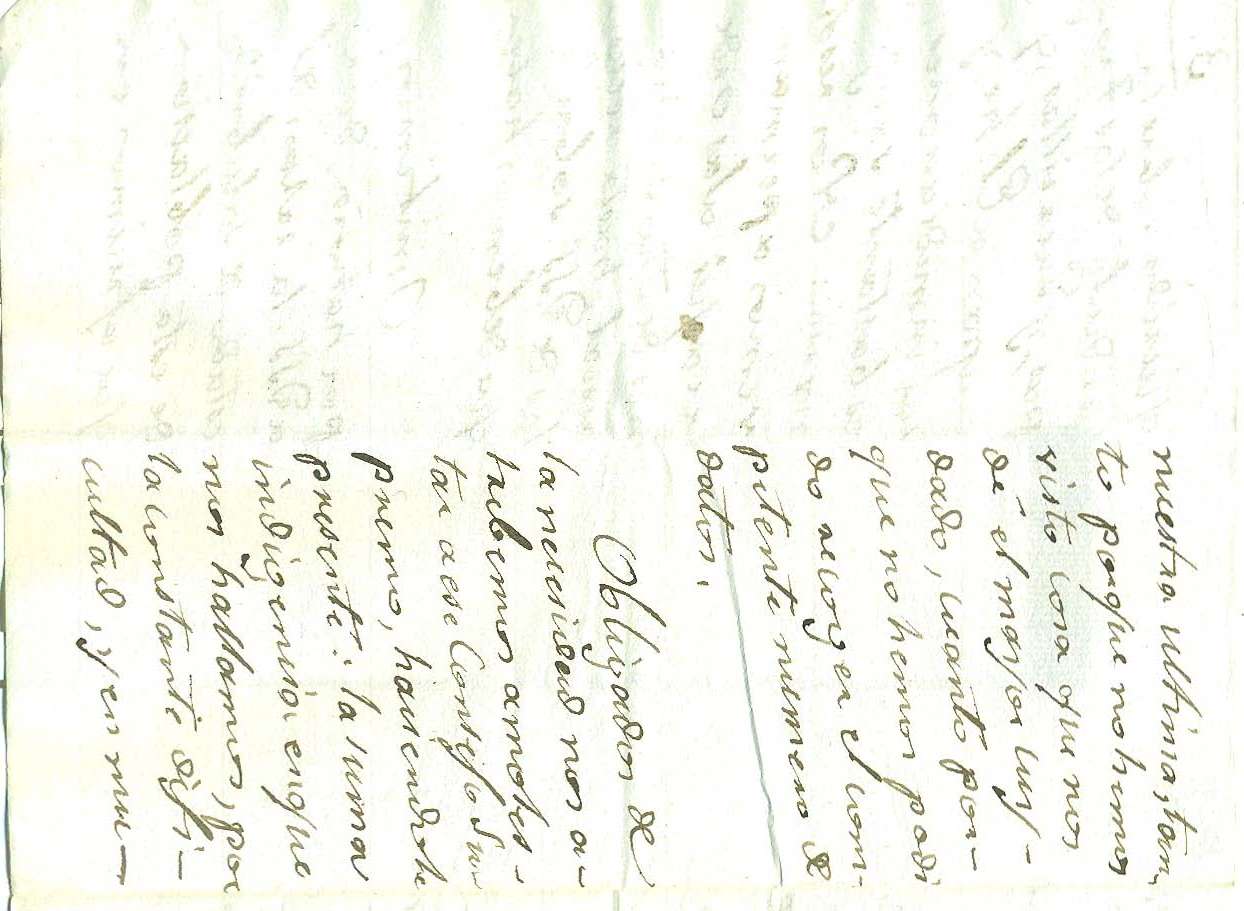 nuestra ultima, tan-
to porque no hemos
visto cosa que nos
dé el mayor cuy-
dado, cuanto por-
que no hemos podi
do recoger el com-
petente numero de
datos.
Obligados de
la necesidad nos a-
trebemos a moles-
tar a ese Consejo Su
premo, haciendole
presente: la suma
indigencia en que
nos hallamos, por
la constante difi-
cultad, y en mu-